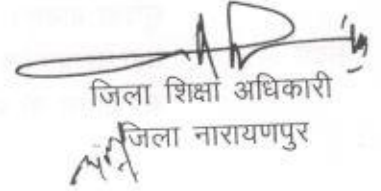 जिला शिक्षा अधिकारी
जिला नारायणपुर